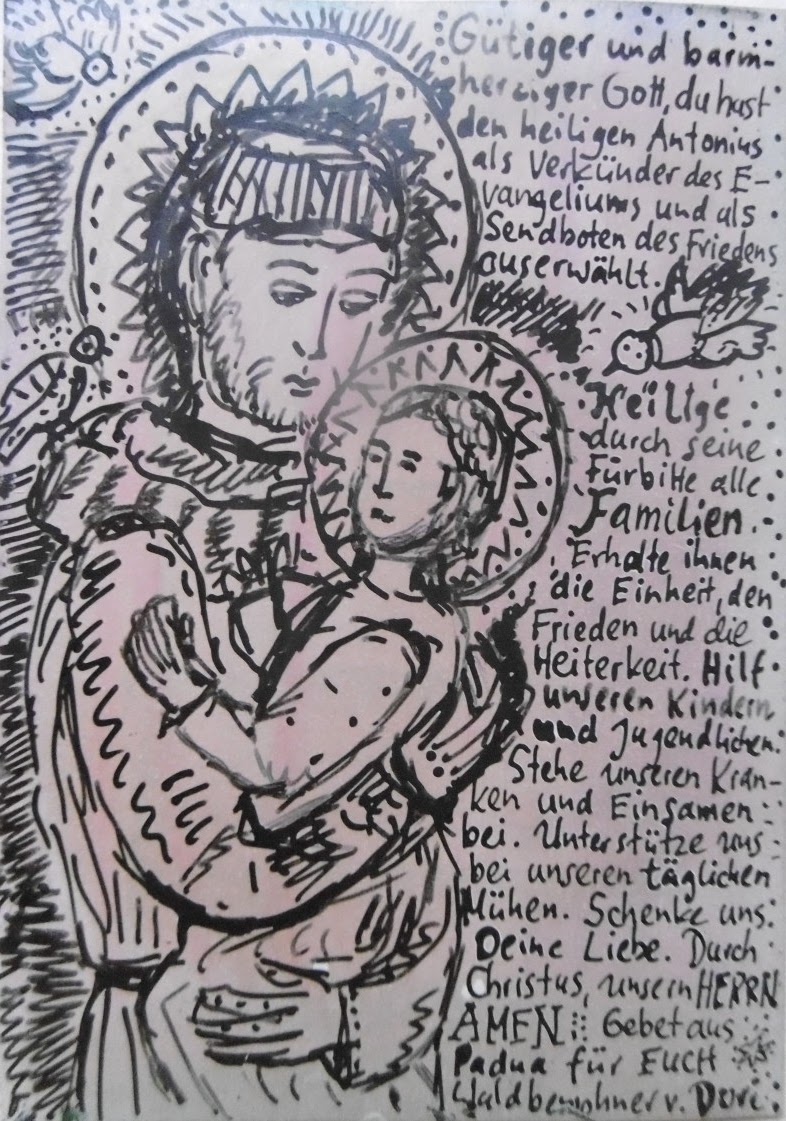 Gütiger und barm-
herziger Gott, du hast
den heiligen Antonius
als Verkünder des E-
vangeliums und als
Sendboten des Friedens
auserwählt.
Heilige
durch seine
Fürbitte alle
Familien.
Erhalte ihnen
die Einheit, den
Frieden und die
Heiterkeit. Hilf
unseren Kindern
und Jugendlichen.
Stehe unseren Kran-
ken und Einsamen
bei. Unterstütze uns
bei unseren täglichen
Mühen. Schenke uns
Deine Liebe. Durch
Christus, unsern HERRN
AMEN Gebet aus
Padua für EUCH
Waldbewohner v. Dori